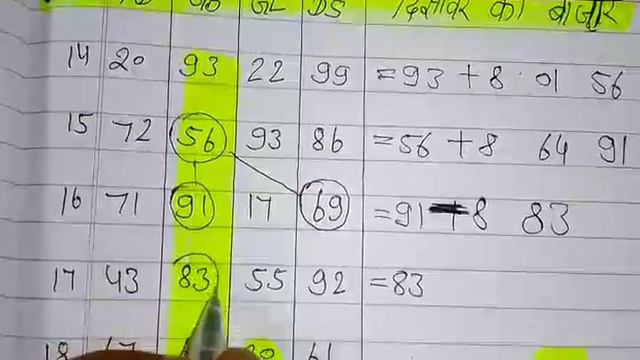 GL DS दिसावर का बाजार
14 20 93 22 99 =93 +8 01 56
15 72 56 93 86 =56 +8 64 91
16 71 91 17 69 =91 +8 83
17 43 83 55 92 =83
18 61